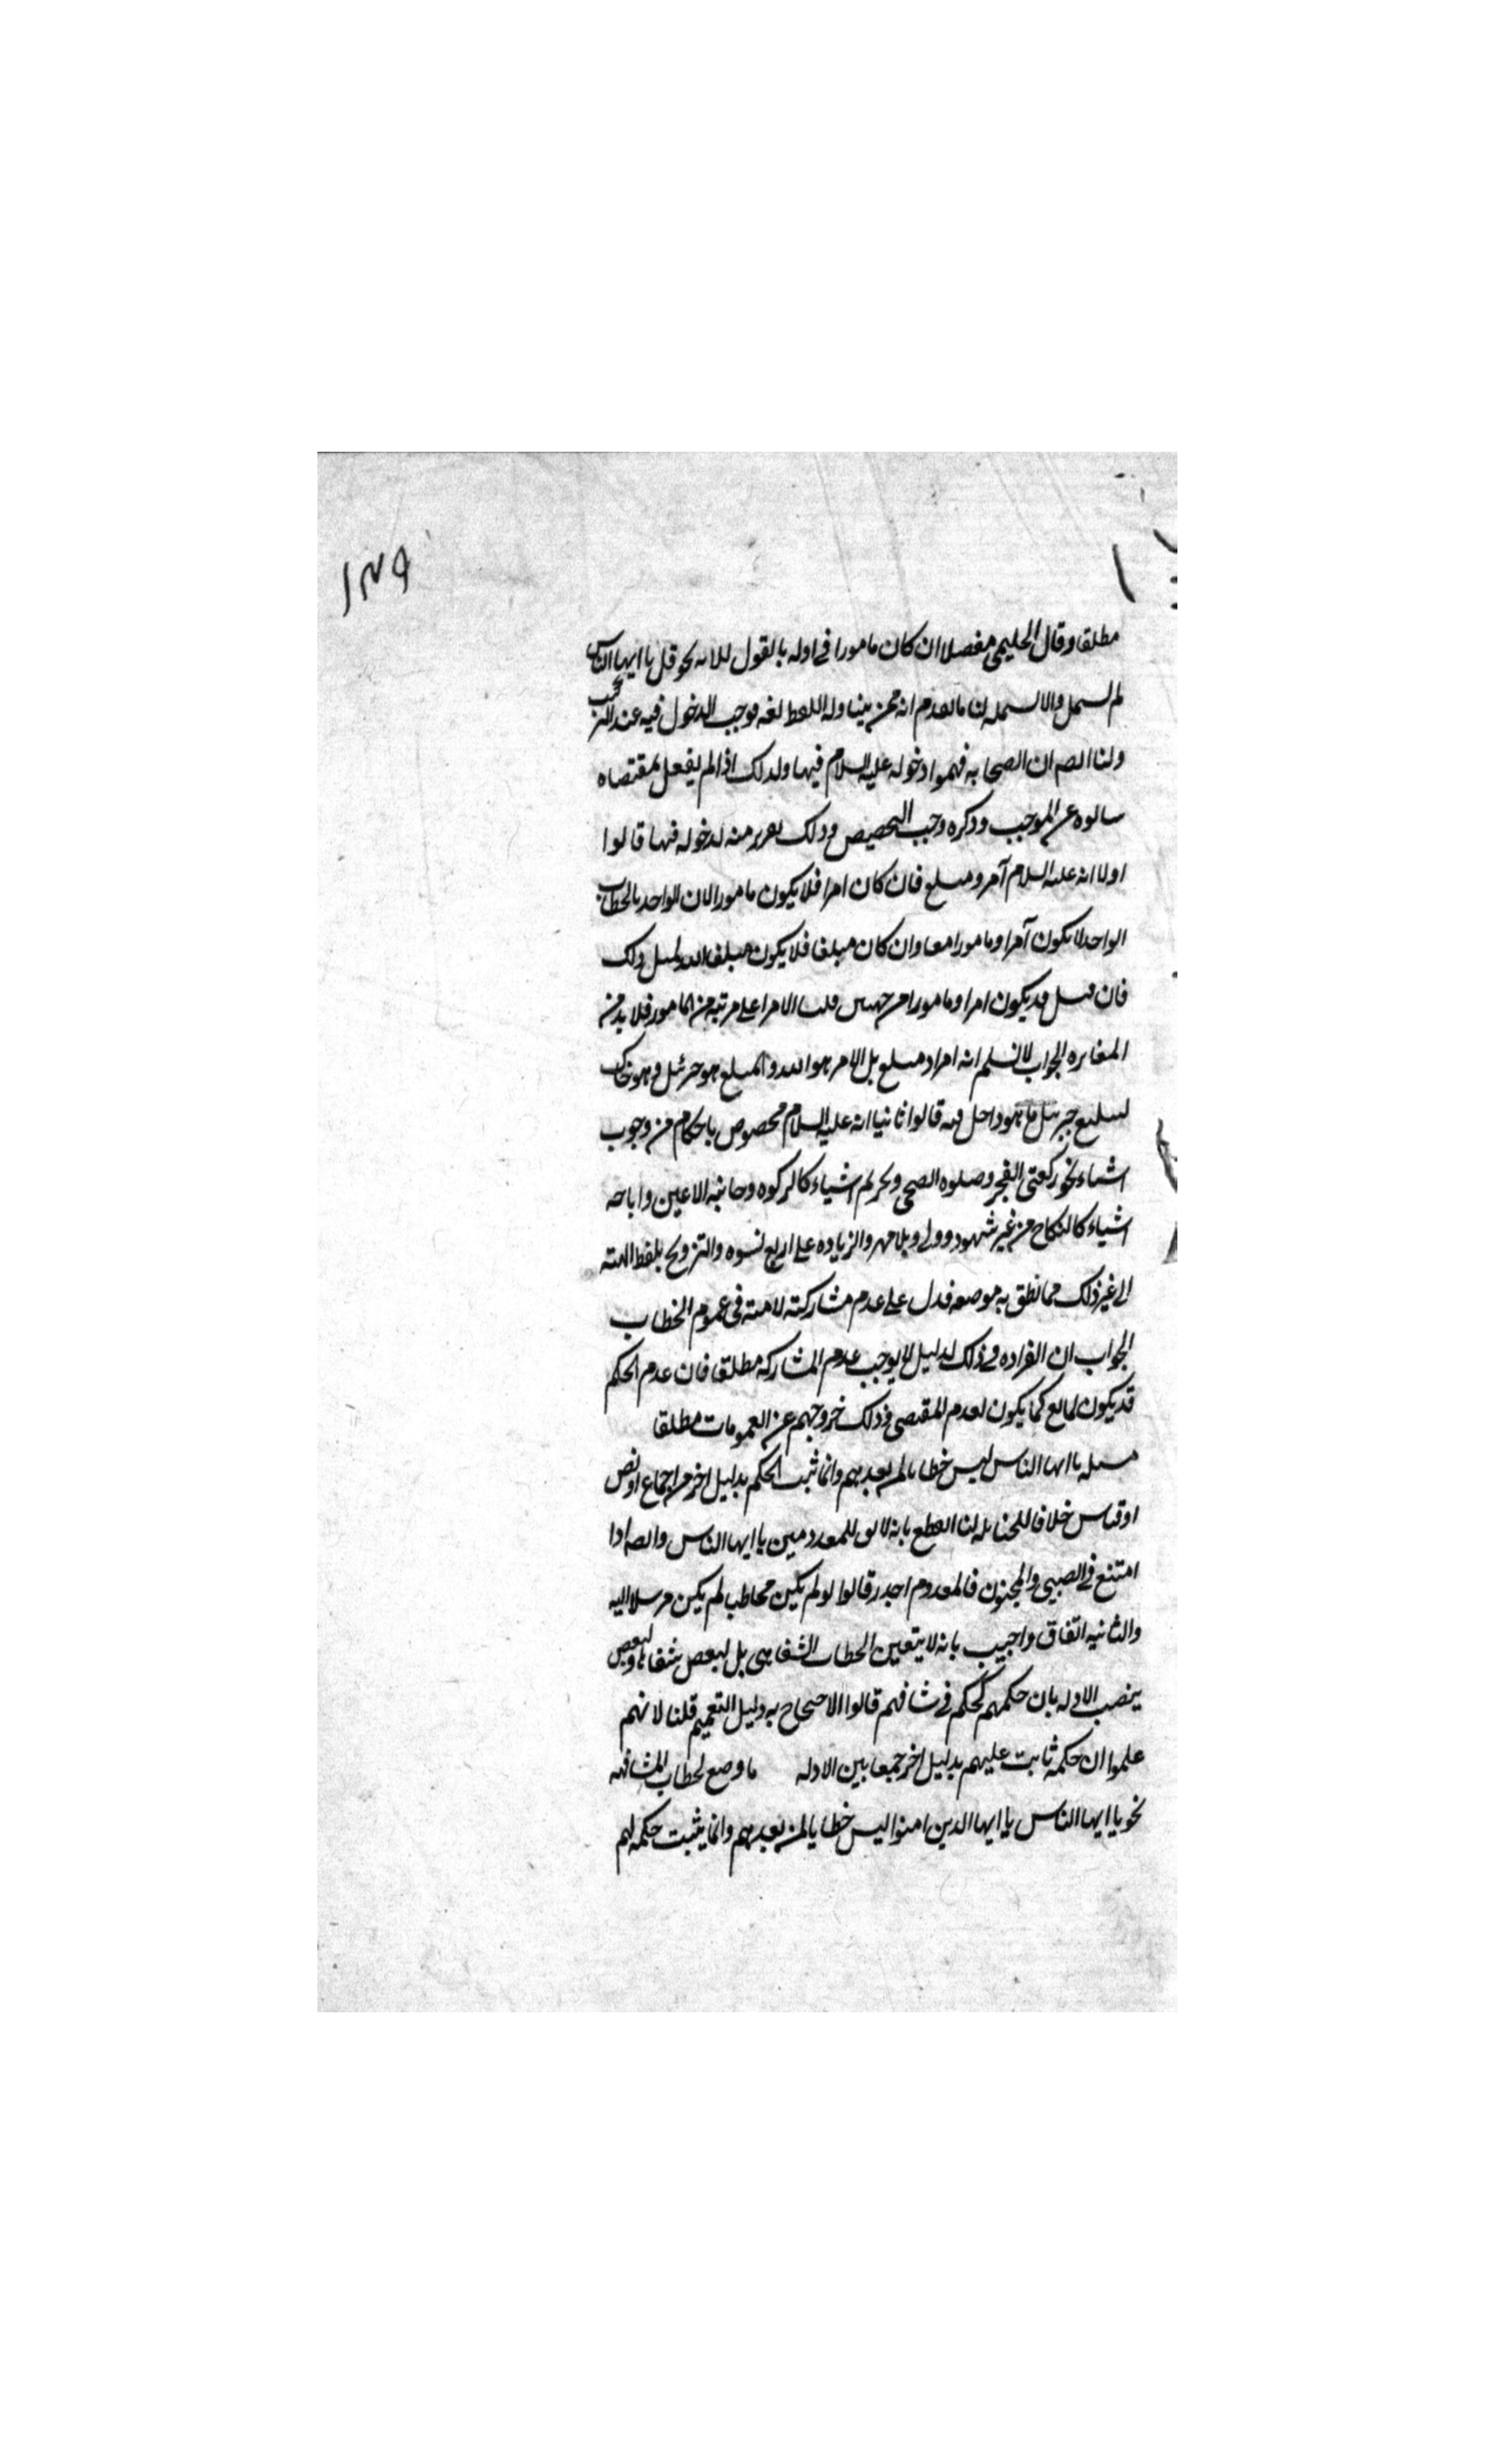 ١٣٩
مطلقا وقال الحليمي مفصلا ان كان مامورا في اوله بالقول نحو قل يا ايها الناس
لم يشمله والا يشمله لنا ما تقدم انه ممن يتناوله اللفظ لغة فوجب الدخول فيه عند التركيب
ولنا ايضا ان الصحابه فهموا دخوله عليه السلام فيها ولذلك اذا لم يفعل بمقتضاه
سالوه عن الموجب وذكره وجب التخصيص وذلك تقرير منه لدخوله فيها قالوا
اولا انه عليه السلام آمر ومبلغ فان كان امرا فلا يكون مامورا لان الواحد بالخطاب
الواحد لا يكون آمرا ومامورا معا وان كان مبلغا فلا يكون مبلغا اليه لمثل ذلك
فان قيل قد يكون امرا ومامورا من جهتين قلت الامر اعلى مرتبة من المامور فلا بد من
المغايره الجواب لا نسلم انه امر او مبلغ بل الامر هو الله والمبلغ هو جبرئيل وهو حاك
لتبليغ جبرئيل ما هو داخل فيه قالوا ثانيا انه عليه السلام مخصوص باحكام من وجوب
اشياء نحو ركعتى الفجر وصلوه الضحى وتحريم اشياء كالزكوه وخائنه الاعين واباحه
اشياء كالنكاح من غير شهود وولي وبلا مهر والزياده على اربع نسوه والتزويج بلفظ الهبه
الى غير ذلك مما نطق به موضعه فدل على عدم مشاركته لامته في عموم الخطاب
الجواب ان انفراده في ذلك لدليل لا يوجب عدم المشاركه مطلقا فان عدم الحكم
قد يكون لمانع كما يكون لعدم المقتضى وذلك خروجهم عن العمومات مطلقا
مسله يا ايها الناس ليس خطابا لمن بعدهم وانما ثبت الحكم بدليل اخر من اجماع او نص
او قياس خلافا للحنابله لنا القطع بانه لا يق للمعدومين يا ايها الناس وايضا اذا
امتنع في الصبي والمجنون فالمعدوم اجدر قالوا لو لم يكن مخاطب لم يكن مرسلا اليه
والثانيه اتفاق واجيب بانه لا يتعين الخطاب الشفاهى بل لبعض شفاها ولبعض
بنصب الادله بان حكمهم كحكم في شافهم قالوا الاحتجاج به دليل التعميم قلنا لانهم
علموا ان حكمه ثابت عليهم بدليل اخر جمعا بين الادله ما وضع لخطاب المشافهه
نحو يا ايها الناس يا ايها الذين امنوا ليس خطابا لمن بعدهم وانما يثبت حكمه لهم